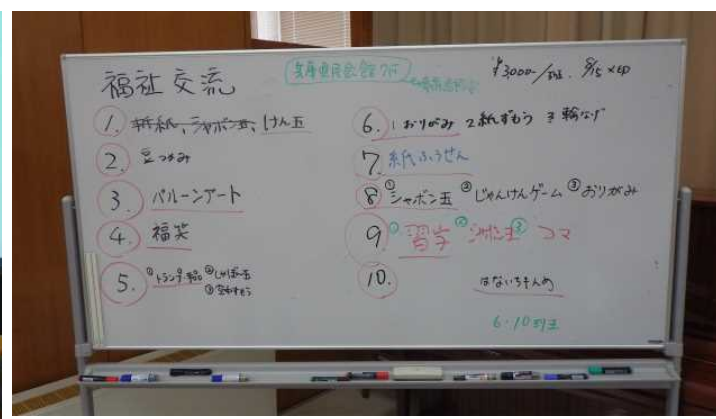 福祉交流
¥3000-/班. 8/15 ×切
1. 折紙、シャボン玉、けん玉
2. 豆つかみ
3. バルーンアート
4. 福笑
5. ①トランプ手品 ②しゃぼん玉
③
6. 1 おりがみ 2 紙ずもう 3 輪なげ
7. 紙ふうせん
8 ①シャボン玉 ②じゃんけんゲーム ③おりがみ
9 ①習字 ② ③コマ
10. はないちもんめ
6・10 班